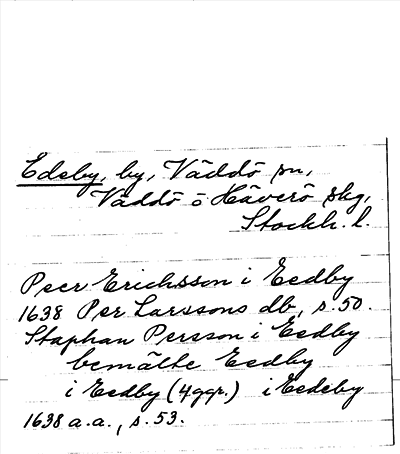 Edeby, by, Väddö sn,
Väddö o Häverö skg,
Stockh. l.
Peer Erichsson i Eedby
1638 Per Larssons db, s. 50.
Staphan Persson i Eedby
bemälte Eedby
i Eedby (4 ggr.) i Eedeby
1638 a.a., s. 53.